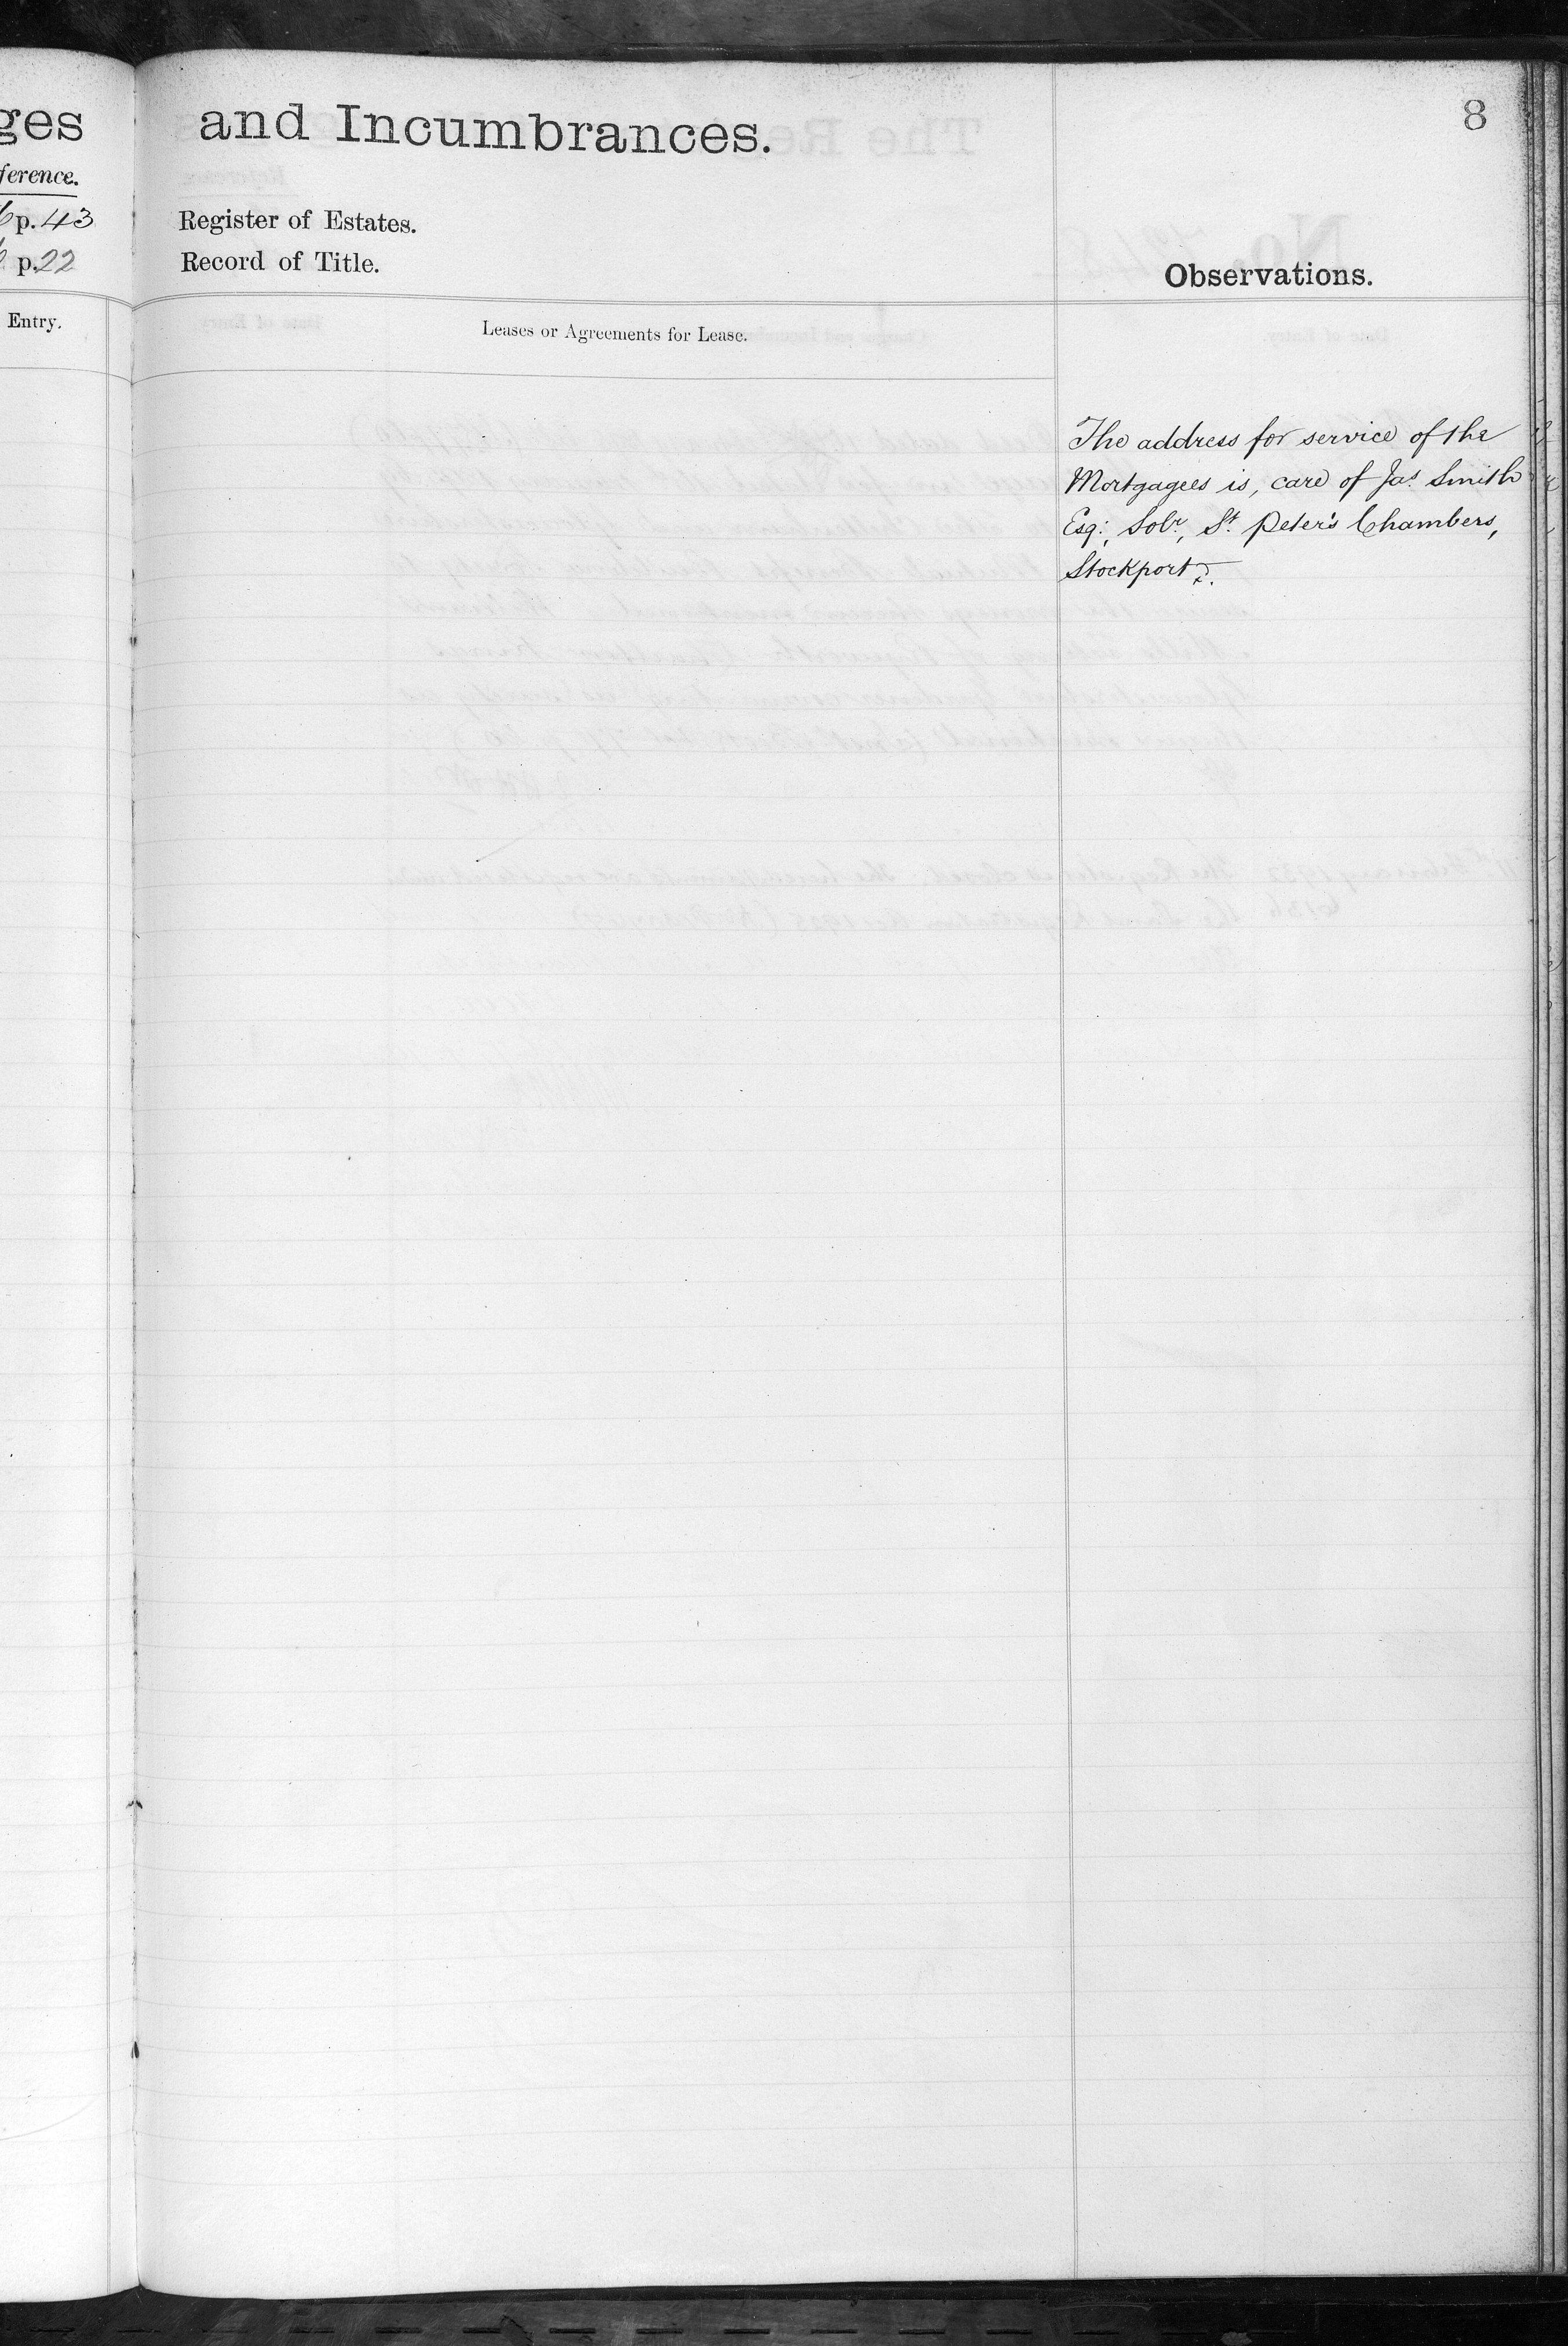 ges and Incumbrances. 8
ference.
p. 43 Register of Estates.
p. 22 Record of Title.
Observations.
Entry. Leases or Agreements for Lease.
The address for service of the
Mortgagees is, care of Jas. Smith
Esq:, Solr, St. Peter's Chambers,
Stockport